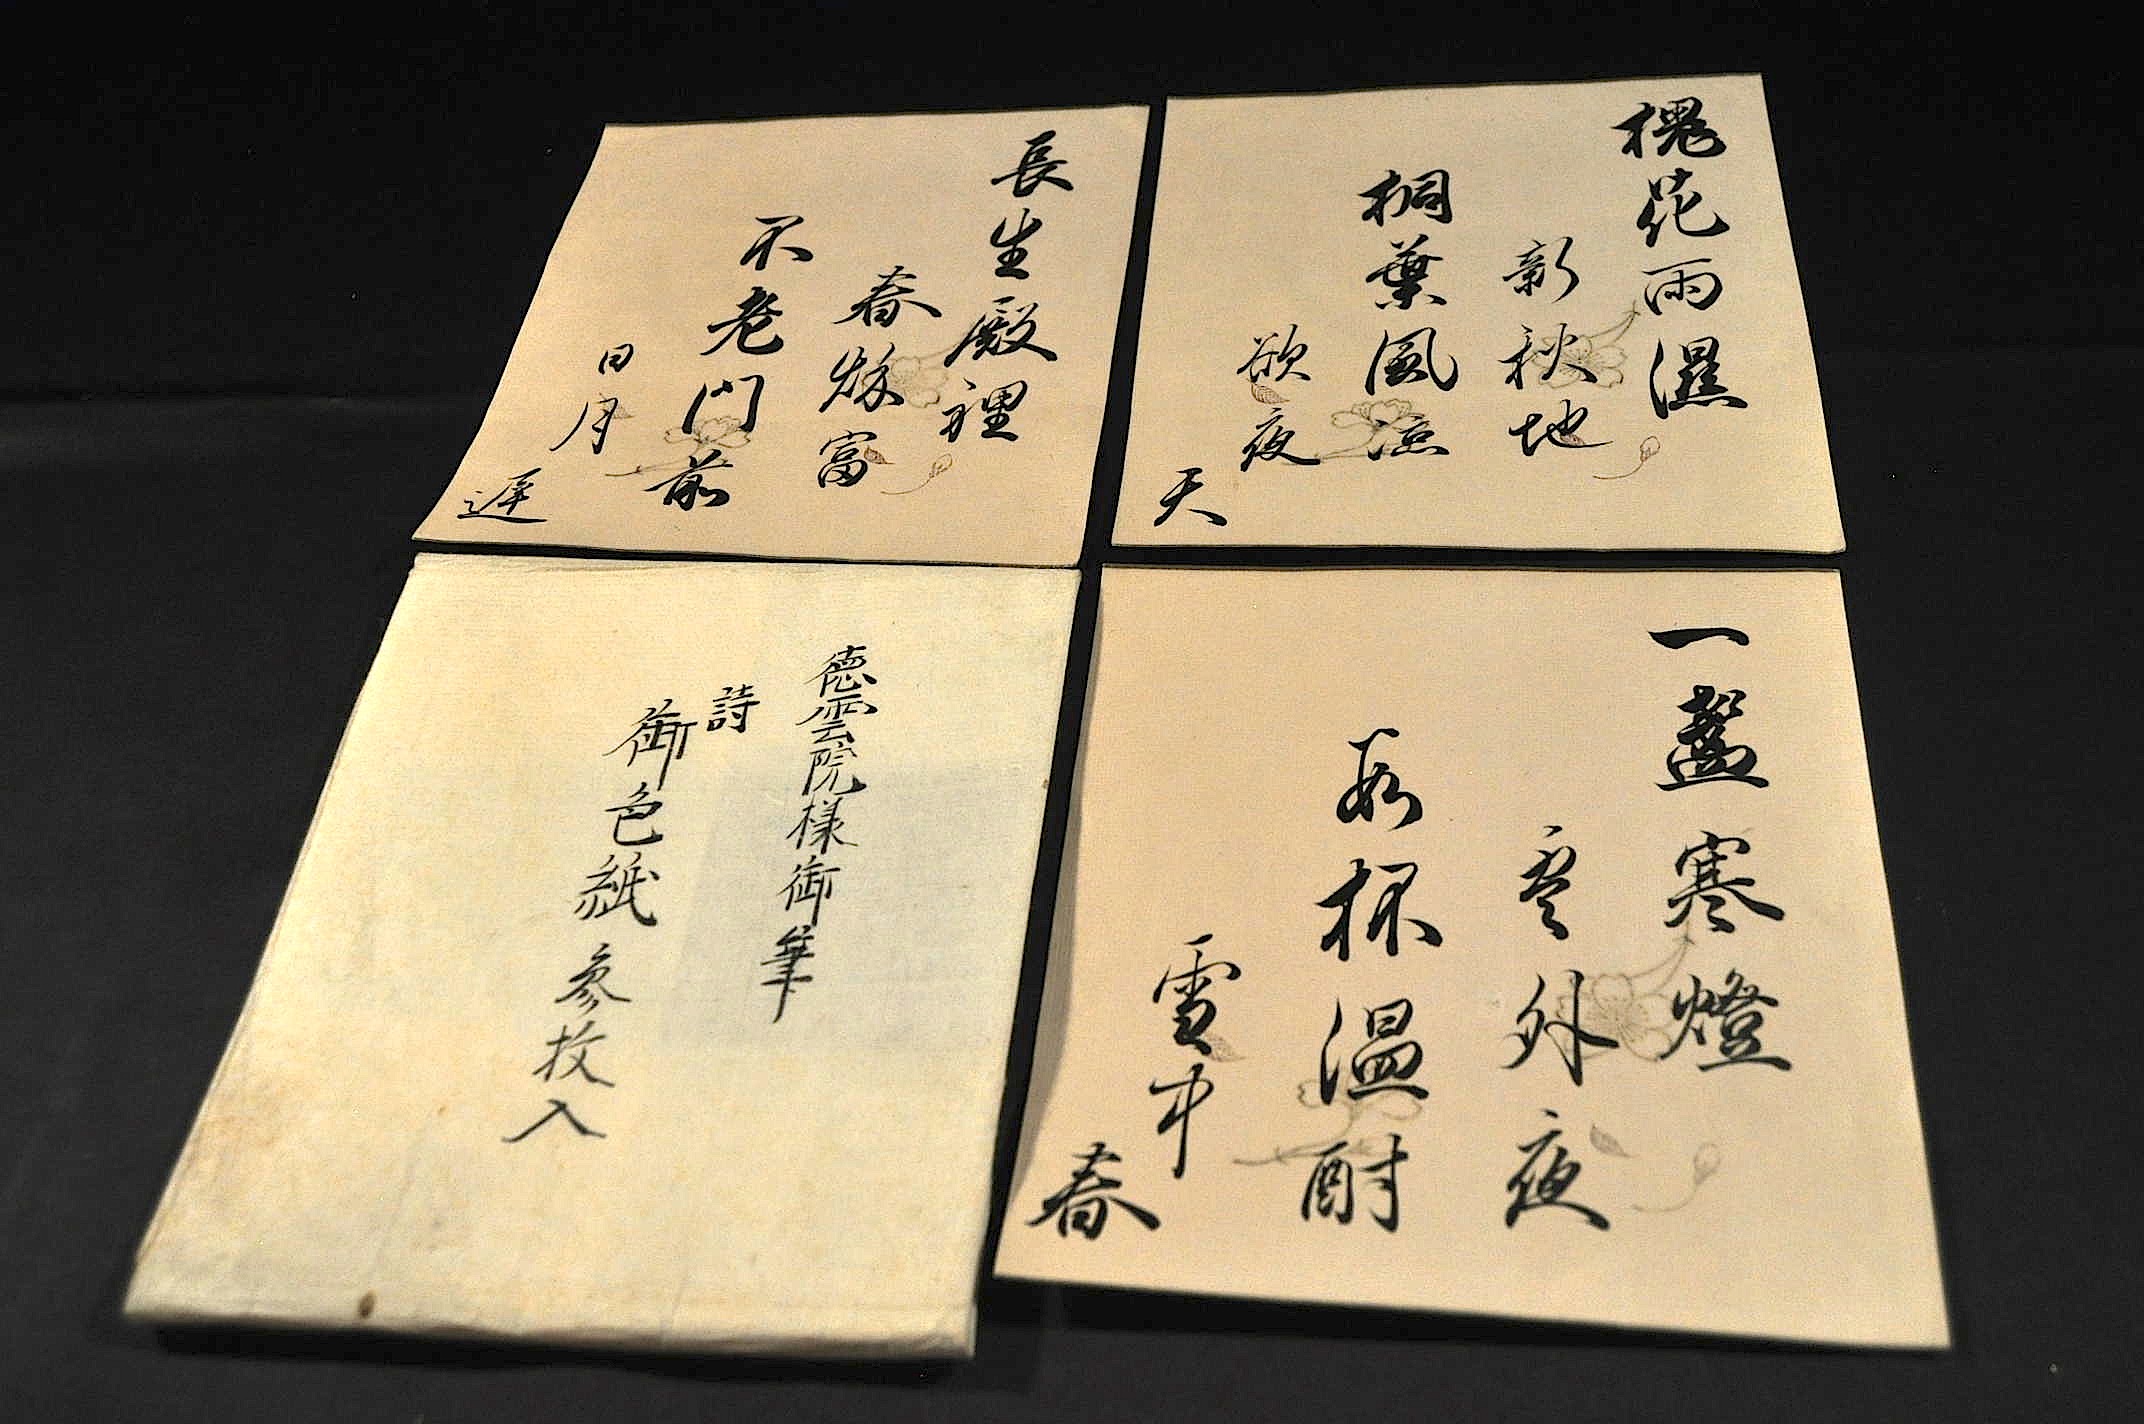 槐花雨濕
新秋地
桐葉風涼
欲夜
天
長生殿裡
春秌富
不老門前
日月
遅
一盞寒燈
雲外夜
数杯温酎
雪中
春
徳雲院様御筆
詩
御色紙参枚入